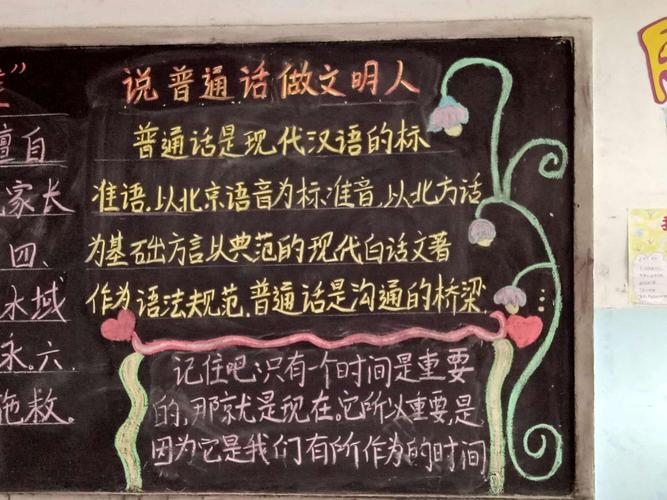 说普通话做文明人
普通话是现代汉语的标
准语.以北京语音为标准音.以北方话
为基础方言以典范的现代白话文著
作为语法规范.普通话是沟通的桥梁.
记住吧:只有一个时间是重要
的,那就是现在。它所以重要,是
因为它是我们有所作为的时间
擅自
家长
四、
水域
泳。六.
施救。